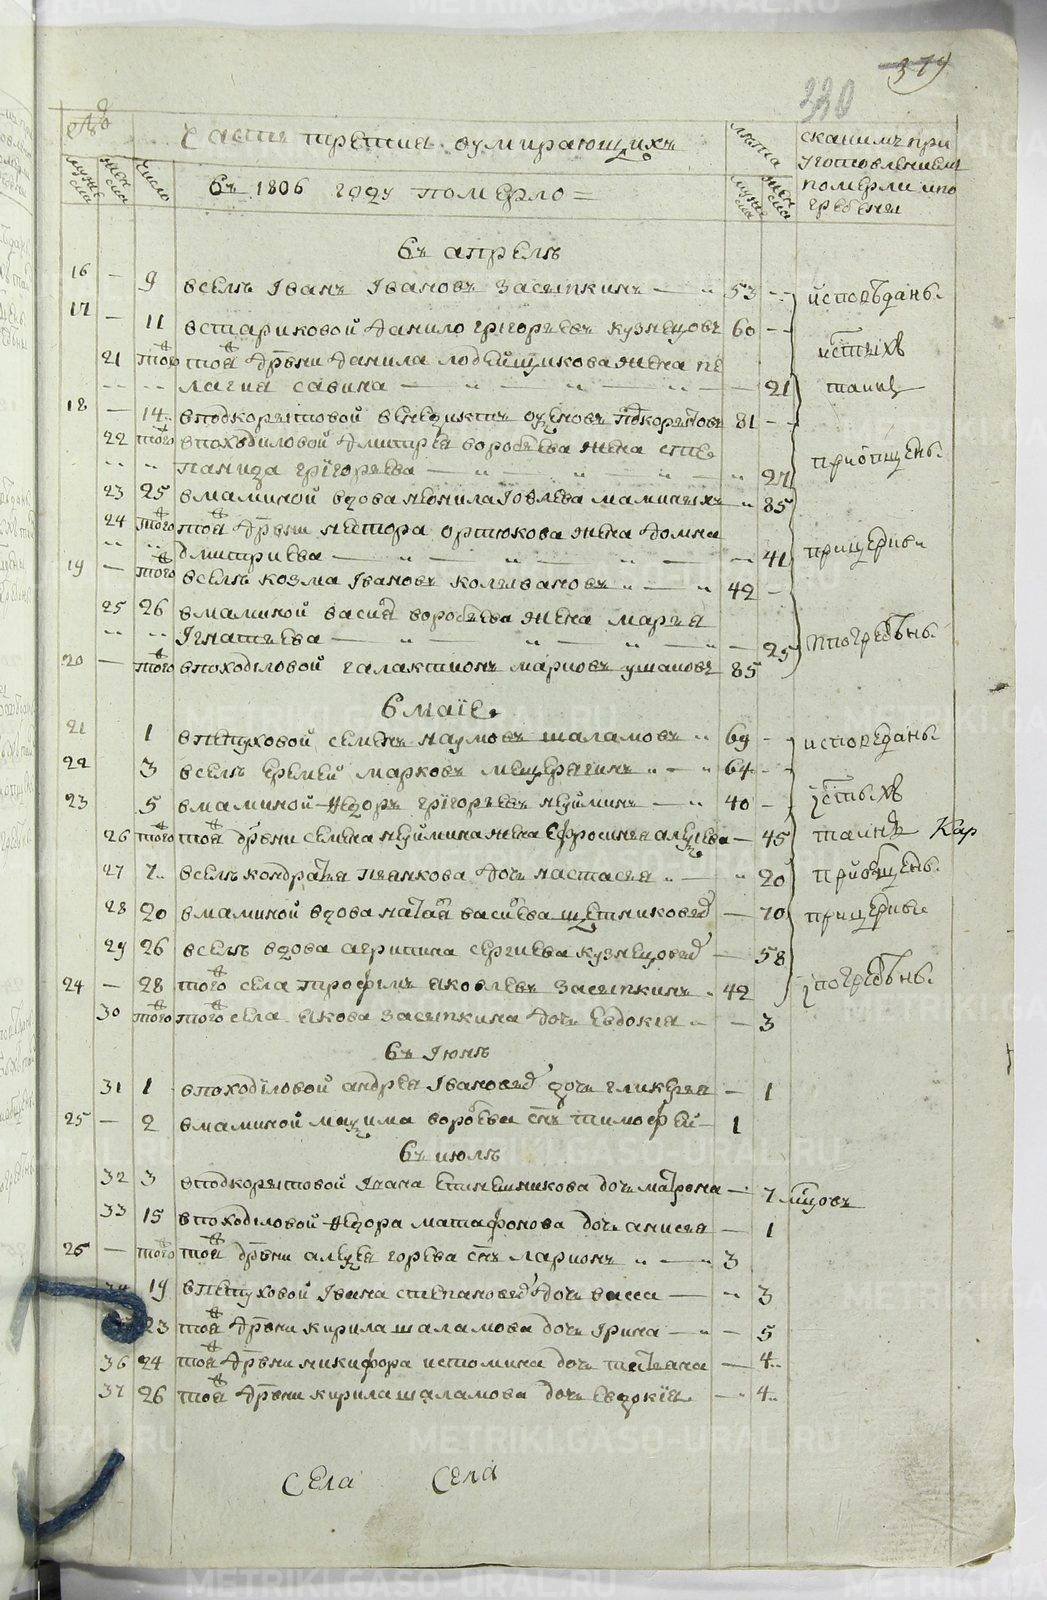 379
330
№
Часть третия оумирающихъ
лѣта
скакимъ при
уготовлениемъ
померли ипо
гребены
мужеска
женска
число
Въ 1806 году померло =
мужеска
женска
Въ апрелѣ
16 — 9 вселѣ Іванъ Івановъ Засыпкинъ — " 53 - -
исповѣданы.
17 — 11 встариковой Данило Григорьевъ Кузнецовъ 60 - -
истыхъ
21 того той дрвни Данила Лодейщикова жена пе
лагия Савина — " — " — " — 21
таинъ
18 — 14 вподкорытовой Бенедиктъ Подкорытовъ 81 - -
22 того впоходиловой Дмитрея Воробьева жена сте
панида Григорьева — " — " — " 27
приобщены.
23 25 вмаминой вдова Неонила Іовлева Маминыхъ — " 85
24 того той дрвни Нестора Ортюкова жена Домна
Дмитриева — " — " — " — 41
причерпвы
19 — того вселѣ Козма Івановъ Колывановъ " — " 42 -
25 26 вмаминой Васия Воробьева жена Марья
Ігнатьева — " — " — " — 25
ипогребѣны.
20 — того впоходиловой Галактионъ Марковъ Ушаковъ 85
Вмаіе.
21 1 впетуховой Семенъ Наумовъ Шаламовъ " 69 - -
исповеданы
22 3 вселѣ Еремей Марковъ Мещерягинъ " — " 64 - -
23 5 вмаминой Федоръ Григорьевъ Неуйминъ — " 40 - -
істыхъ
26 того той дрвни Семена Неуймина жена Ефросинья Алеѯіева — 45
таинъ
Кар
27 7 вселѣ Кондратья Пьянкова дочь Настасья " — " 20
приобщены.
28 20 вмаминой вдова Наталья Васильева Щетниковых — 70
29 26 вселѣ вдова Агрипина Сергиева Кузнецовых — 58
24 — 28 того села Трофимъ Яковлевъ Засыпкинъ . 42
іпогребѣны.
30 того того села Якова Засыпкина дочь Евдокия " — 3
Въ Іюнѣ
31 1 впоходиловой Андрея Івановых дочь Гликерья — 1
25 — 2 вмаминой Маѯима Воробьева снъ Тимофей — 1
Въ июлѣ
32 3 вподкорытовой Івана Епинешникова дочь Матрона — 7
33 15 впоходиловой Федора Матафонова дочь Анисья — 1
26 — того той дрвни Алеѯея Горева снъ Ларионъ " — " 3
34 19 впетуховой Івана Степановых дочь Васса — " 3
23 той дрвни Кирила Шаламова дочь Ірина — " — 5
36 24 той дрвни Никифора Истомина дочь Татьяна — 4
37 26 той дрвни Кирила Шаламова дочь Евдокія — " 4
Села Села